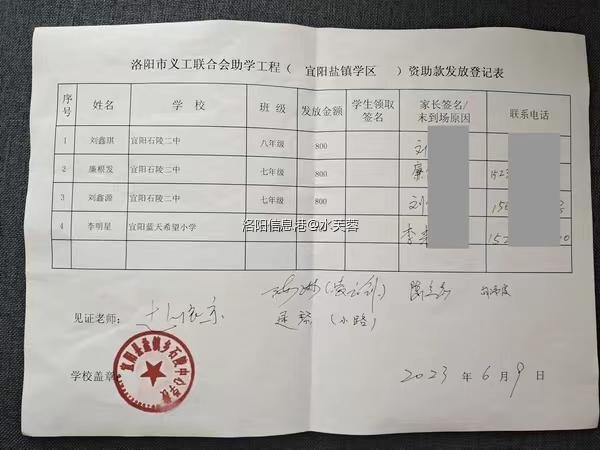 洛阳市义工联合会助学工程（ 宜阳盐镇学区 ）资助款发放登记表
序号 姓名 学校 班级 发放金额 学生领取签名 家长签名/未到场原因 联系电话
1 刘鑫琪 宜阳石陵二中 八年级 800 刘
2 廉根发 宜阳石陵二中 七年级 800 廉 152
3 刘鑫源 宜阳石陵二中 七年级 800 刘 150
4 李明星 宜阳蓝天希望小学 800 李 152 10
洛阳信息港@水芙蓉
见证老师： （小路）
学校盖章
宜阳县盐镇乡石陵中心学校
2023 年 6 月 9 日